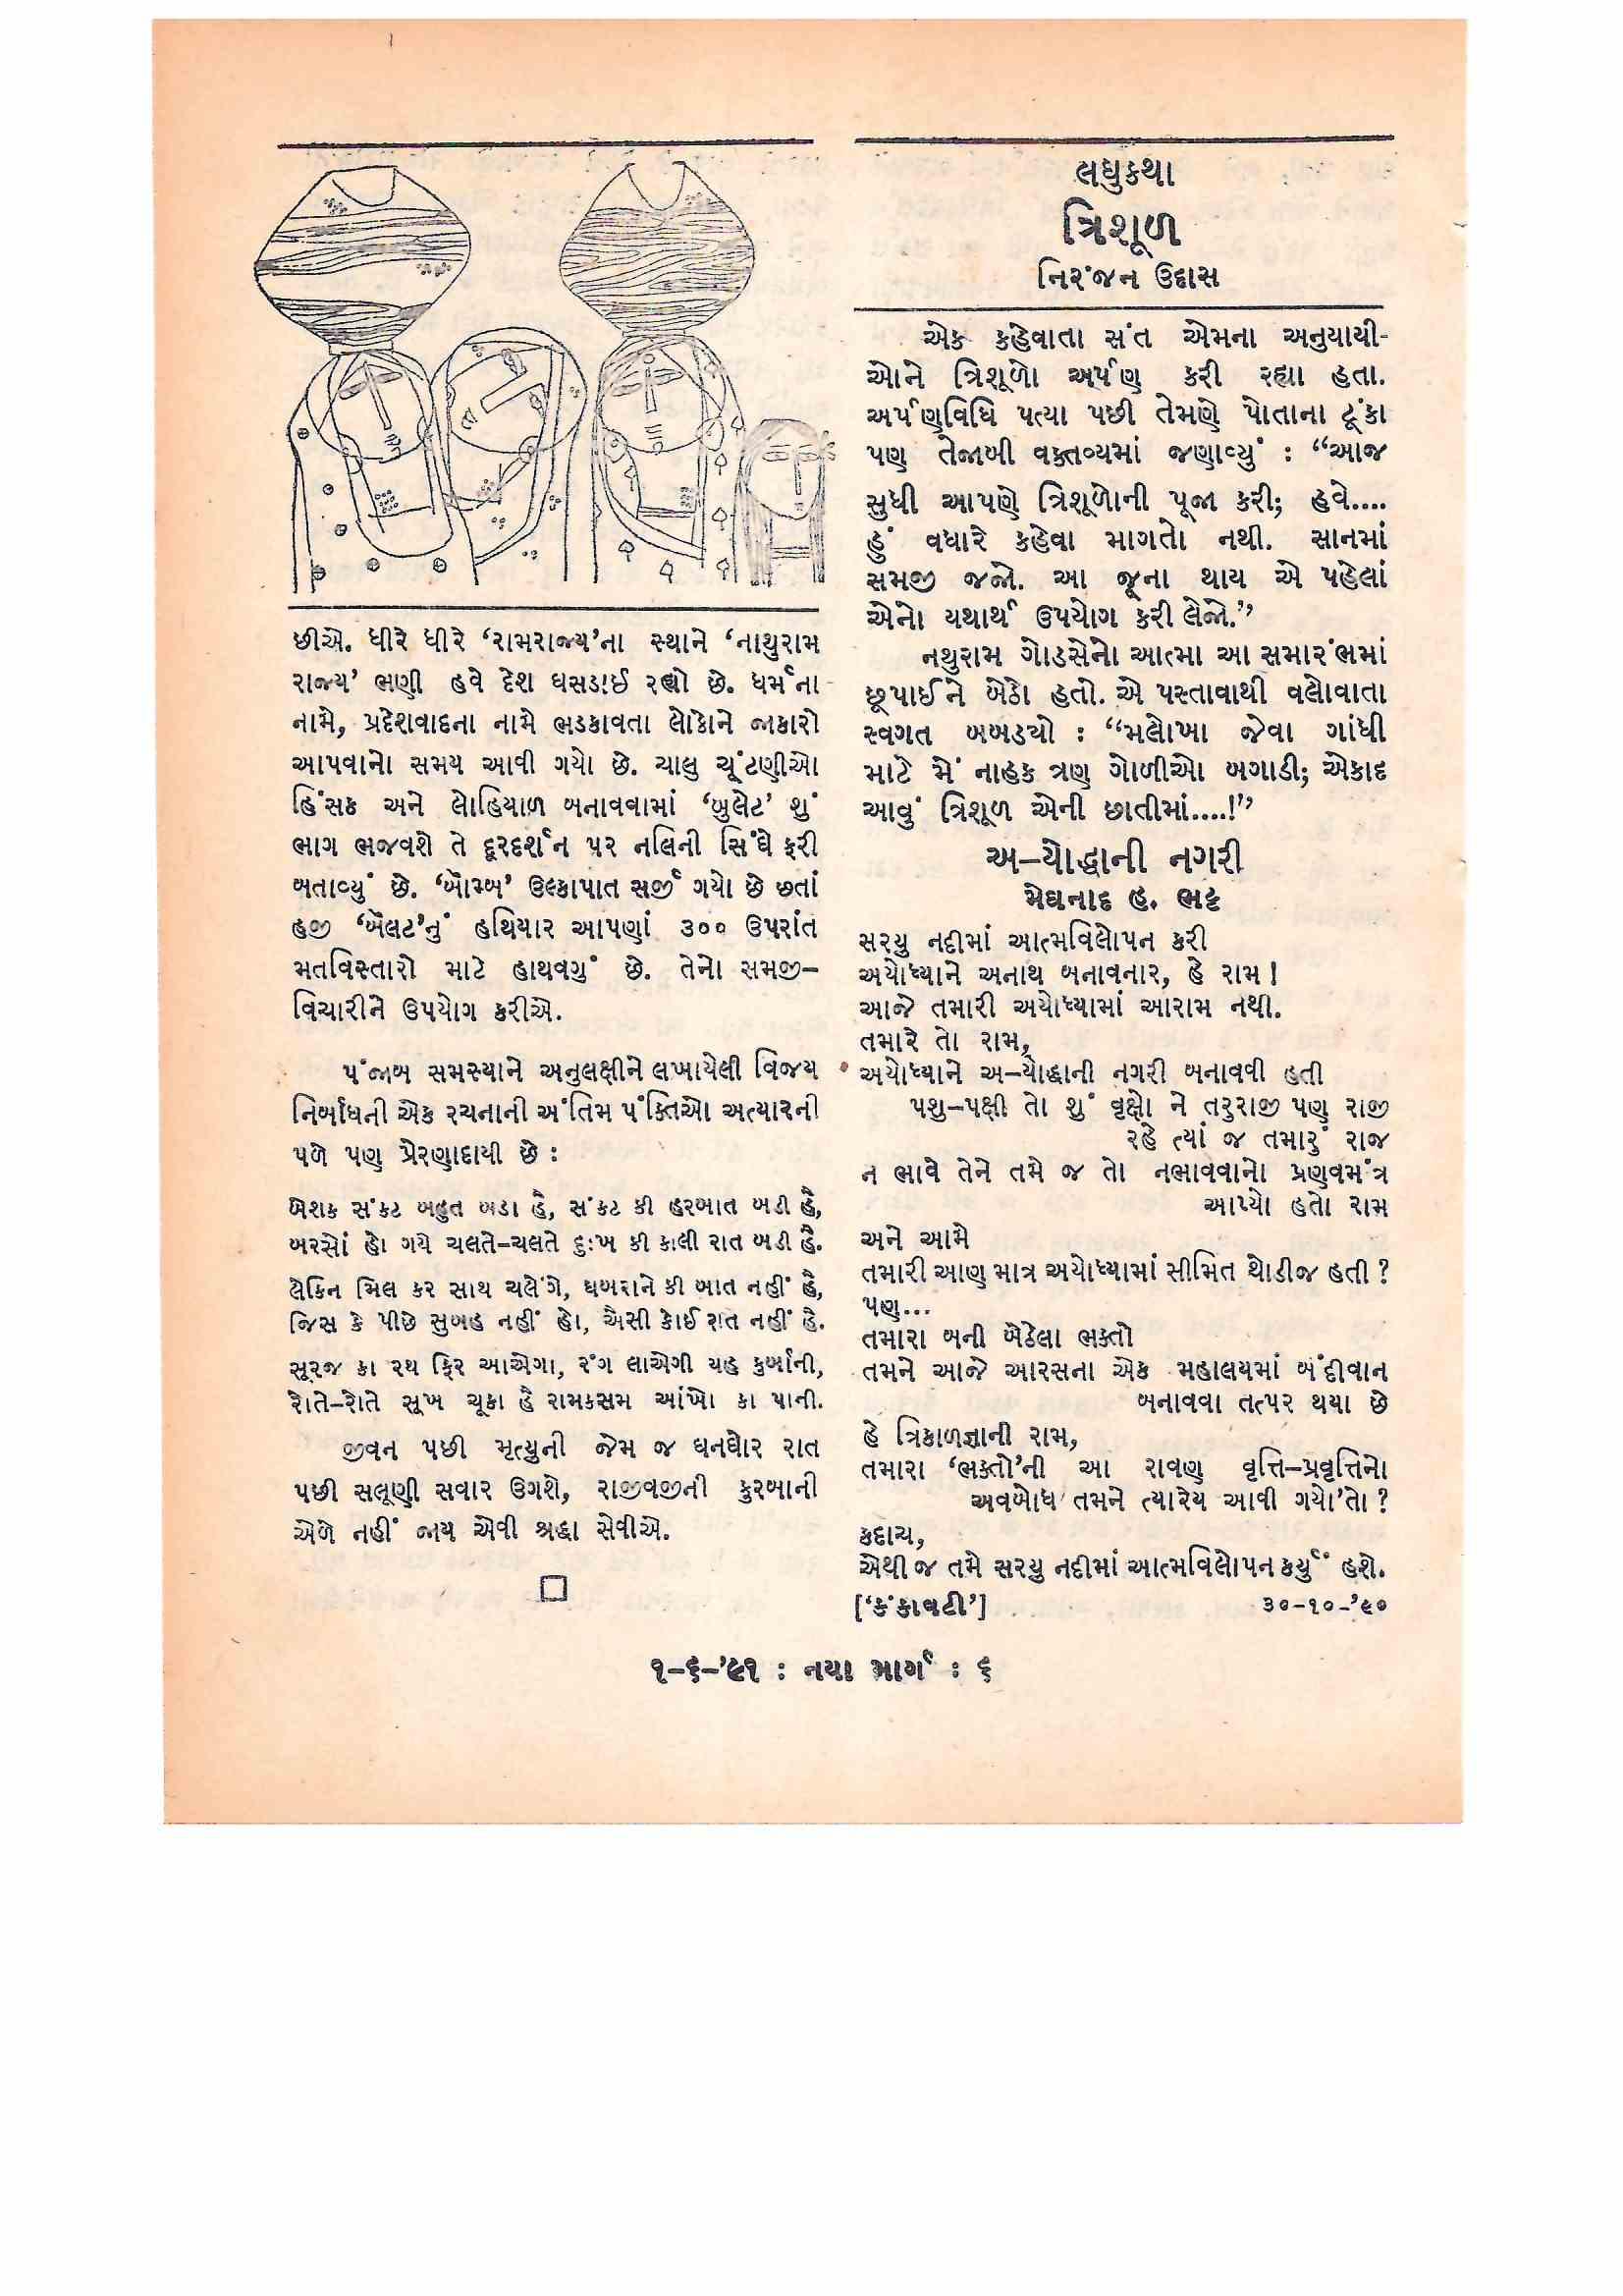 છીએ. ધીરે ધીરે ‘રામરાજ્ય’ના સ્થાને ‘નાથુરામ
રાજ્ય’ ભણી હવે દેશ ધસડાઈ રહ્યો છે. ધર્મના
નામે, પ્રદેશવાદના નામે ભડકાવતા લોકોને જાકારો
આપવાનો સમય આવી ગયો છે. ચાલુ ચૂંટણીઓ
હિંસક અને લોહિયાળ બનાવવામાં ‘બુલેટ’ શું
ભાગ ભજવશે તે દૂરદર્શન પર નલિની સિંઘે ફરી
બતાવ્યું છે. ‘બૉમ્બ’ ઉલ્કાપાત સર્જી ગયો છે છતાં
હજી ‘બૅલટ’નું હથિયાર આપણાં ૩૦૦ ઉપરાંત
મતવિસ્તારો માટે હાથવગું છે. તેનો સમજી–
વિચારીને ઉપયોગ કરીએ.
પંજાબ સમસ્યાને અનુલક્ષીને લખાયેલી વિજય
નિર્બાધની એક રચનાની અંતિમ પંક્તિઓ અત્યારની
પળે પણ પ્રેરણાદાયી છે :
બેશક સંકટ બહુત બડા હૈ, સંકટ કી હરબાત બડી હૈ,
બરસોં હો ગયે ચલતે–ચલતે દુઃખ કી કાલી રાત બડી હૈ.
લેકિન મિલ કર સાથ ચલેંગે, ઘબરાને કી બાત નહીં હૈ,
જિસ કે પીછે સુબહ નહીં હો, ઐસી કોઈ રાત નહીં હૈ.
સૂરજ કા રથ ફિર આએગા, રંગ લાએગી યહ કુર્બાની,
રોતે–રોતે સૂખ ચૂકા હૈ રામકસમ આંખો કા પાની.
જીવન પછી મૃત્યુની જેમ જ ઘનઘોર રાત
પછી સલૂણી સવાર ઉગશે, રાજીવજીની કુરબાની
એળે નહીં જાય એવી શ્રદ્ધા સેવીએ.
લઘુકથા
ત્રિશૂળ
નિરંજન ઉદાસ
એક કહેવાતા સંત એમના અનુયાયી-
ઓને ત્રિશૂળો અર્પણ કરી રહ્યા હતા.
અર્પણવિધિ પત્યા પછી તેમણે પોતાના ટૂંકા
પણ તેજાબી વક્તવ્યમાં જણાવ્યું : “આજ
સુધી આપણે ત્રિશૂળોની પૂજા કરી; હવે....
હું વધારે કહેવા માગતો નથી. સાનમાં
સમજી જજો. આ જૂના થાય એ પહેલાં
એનો યથાર્થ ઉપયોગ કરી લેજો.”
નથુરામ ગોડસેનો આત્મા આ સમારંભમાં
છૂપાઈને બેઠો હતો. એ પસ્તાવાથી વલોવાતા
સ્વગત બબડયો : “મલોખા જેવા ગાંધી
માટે મેં નાહક ત્રણ ગોળીઓ બગાડી; એકાદ
આવું ત્રિશૂળ એની છાતીમાં....!”
અ–યોદ્ધાની નગરી
મેઘનાદ હ. ભટ્ટ
સરયુ નદીમાં આત્મવિલોપન કરી
અયોધ્યાને અનાથ બનાવનાર, હે રામ !
આજે તમારી અયોધ્યામાં આરામ નથી.
તમારે તો રામ,
અયોધ્યાને અ–યોદ્ધાની નગરી બનાવવી હતી
પશુ–પક્ષી તો શું વૃક્ષો ને તરુરાજી પણ રાજી
રહે ત્યાં જ તમારું રાજ
ન ભાવે તેને તમે જ તો નભાવવાનો પ્રણવમંત્ર
આપ્યો હતો રામ
અને આમે
તમારી આણ માત્ર અયોધ્યામાં સીમિત થોડીજ હતી ?
પણ...
તમારા બની બેઠેલા ભક્તો
તમને આજે આરસના એક મહાલયમાં બંદીવાન
બનાવવા તત્પર થયા છે
હે ત્રિકાળજ્ઞાની રામ,
તમારા ‘ભક્તો’ની આ રાવણ વૃત્તિ–પ્રવૃત્તિનો
અવબોધ તમને ત્યારેય આવી ગયો’તો ?
કદાચ,
એથી જ તમે સરયુ નદીમાં આત્મવિલોપન કર્યું હશે.
[‘કંકાવટી’] ૩૦–૧૦–’૯૦
૧–૬–’૯૧ : નયા માર્ગ : ૬